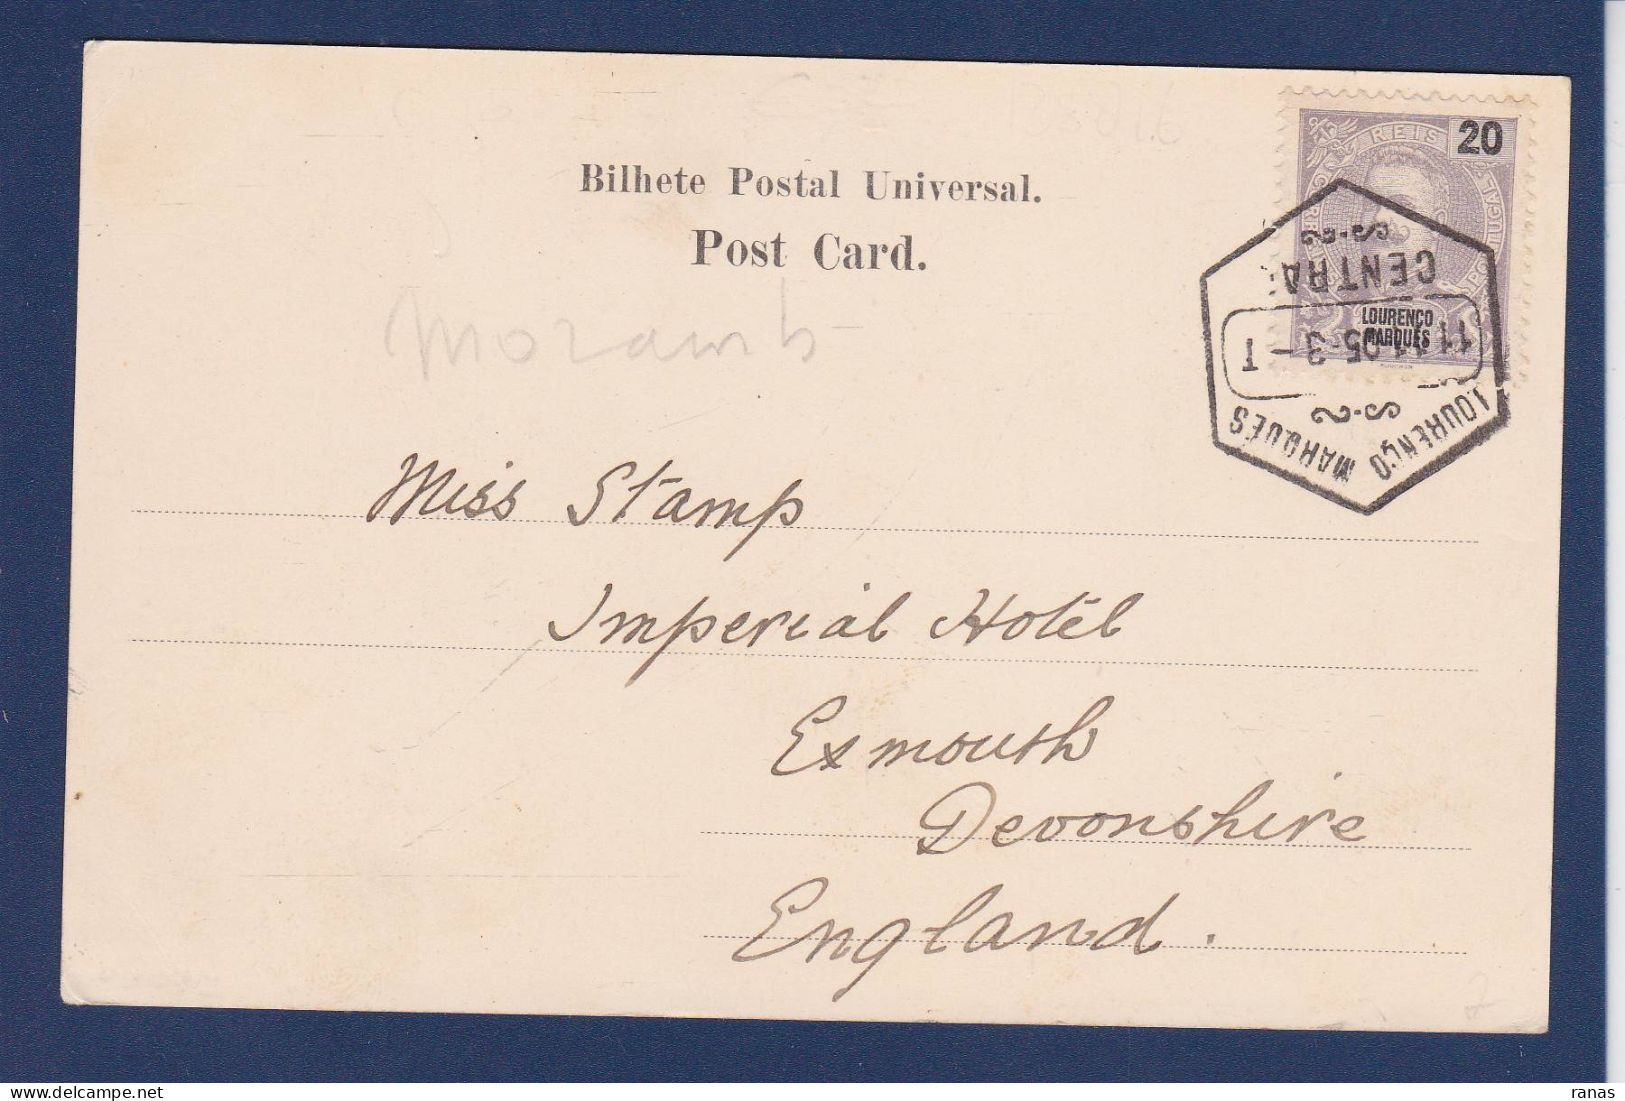 Bilhete Postal Universal.
Post Card.
REIS 20
LOURENÇO
MARQUES
CENTRA
11 11 05 3 - T
LOURENÇO MARQUES
Mozamb
Miss Stamp
Imperial Hotel
Exmouth
Devonshire
England.
ranas